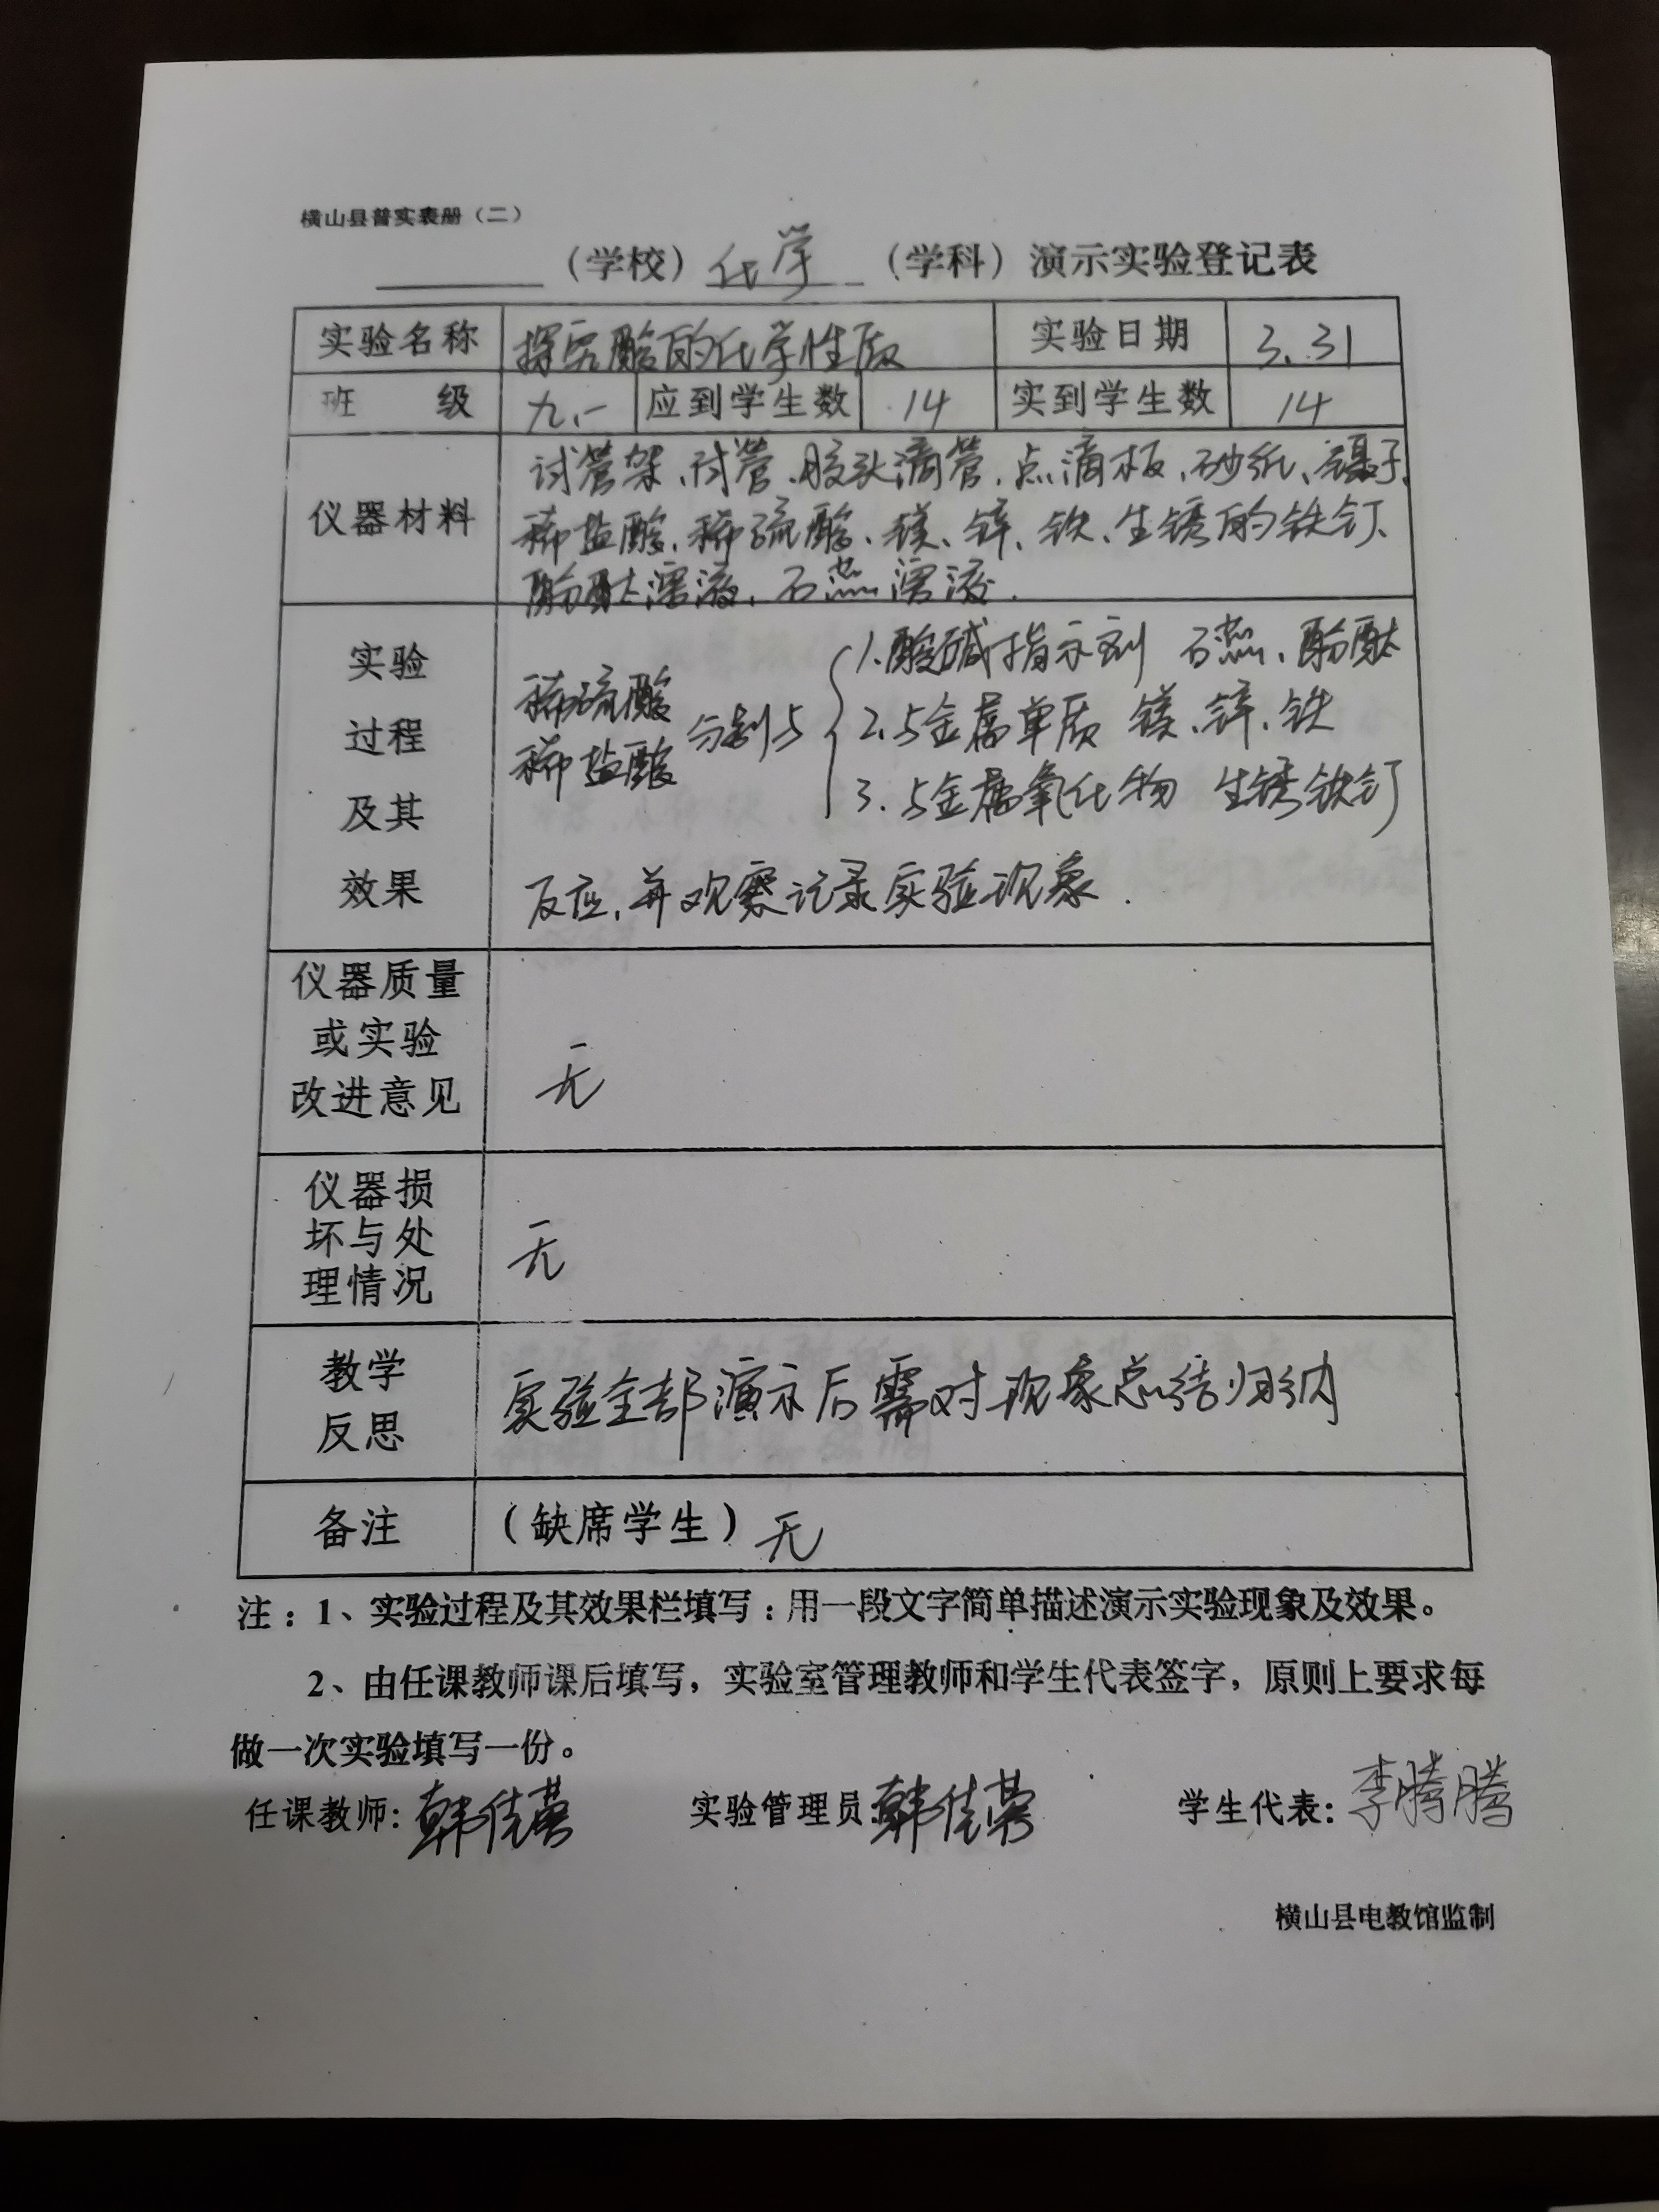 横山县普实表册（二）
（学校）化学（学科）演示实验登记表
实验名称 探究酸的化学性质 实验日期 3.31
班 级 九.一 应到学生数 14 实到学生数 14
试管架、试管、胶头滴管、点滴板、砂纸、镊子、
仪器材料 稀盐酸、稀硫酸、镁、锌、铁、生锈的铁钉、
酚酞溶液、石蕊溶液.
实验
过程
及其
效果
稀硫酸
稀盐酸
分别与
1.酸碱指示剂 石蕊、酚酞
2.与金属单质 镁、锌、铁
3.与金属氧化物 生锈铁钉
反应,并观察记录实验现象.
仪器质量
或实验
改进意见
无
仪器损
坏与处
理情况
无
教学
反思
实验全部演示后需对现象总结归纳
备注 （缺席学生）无
注：1、实验过程及其效果栏填写：用一段文字简单描述演示实验现象及效果。
2、由任课教师课后填写，实验室管理教师和学生代表签字，原则上要求每
做一次实验填写一份。
任课教师：韩佳蓉 实验管理员：韩佳蓉 学生代表：李腾腾
横山县电教馆监制